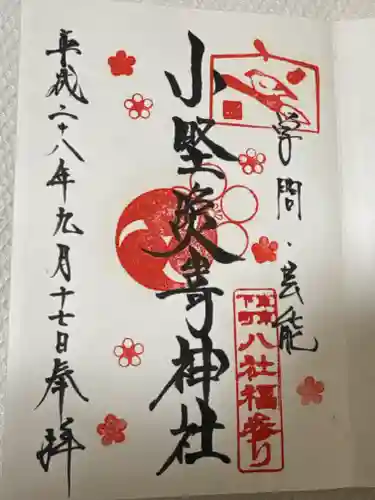 学問・芸能
小竪災嵜神社
八社福参り
平成二十八年九月十七日奉拝